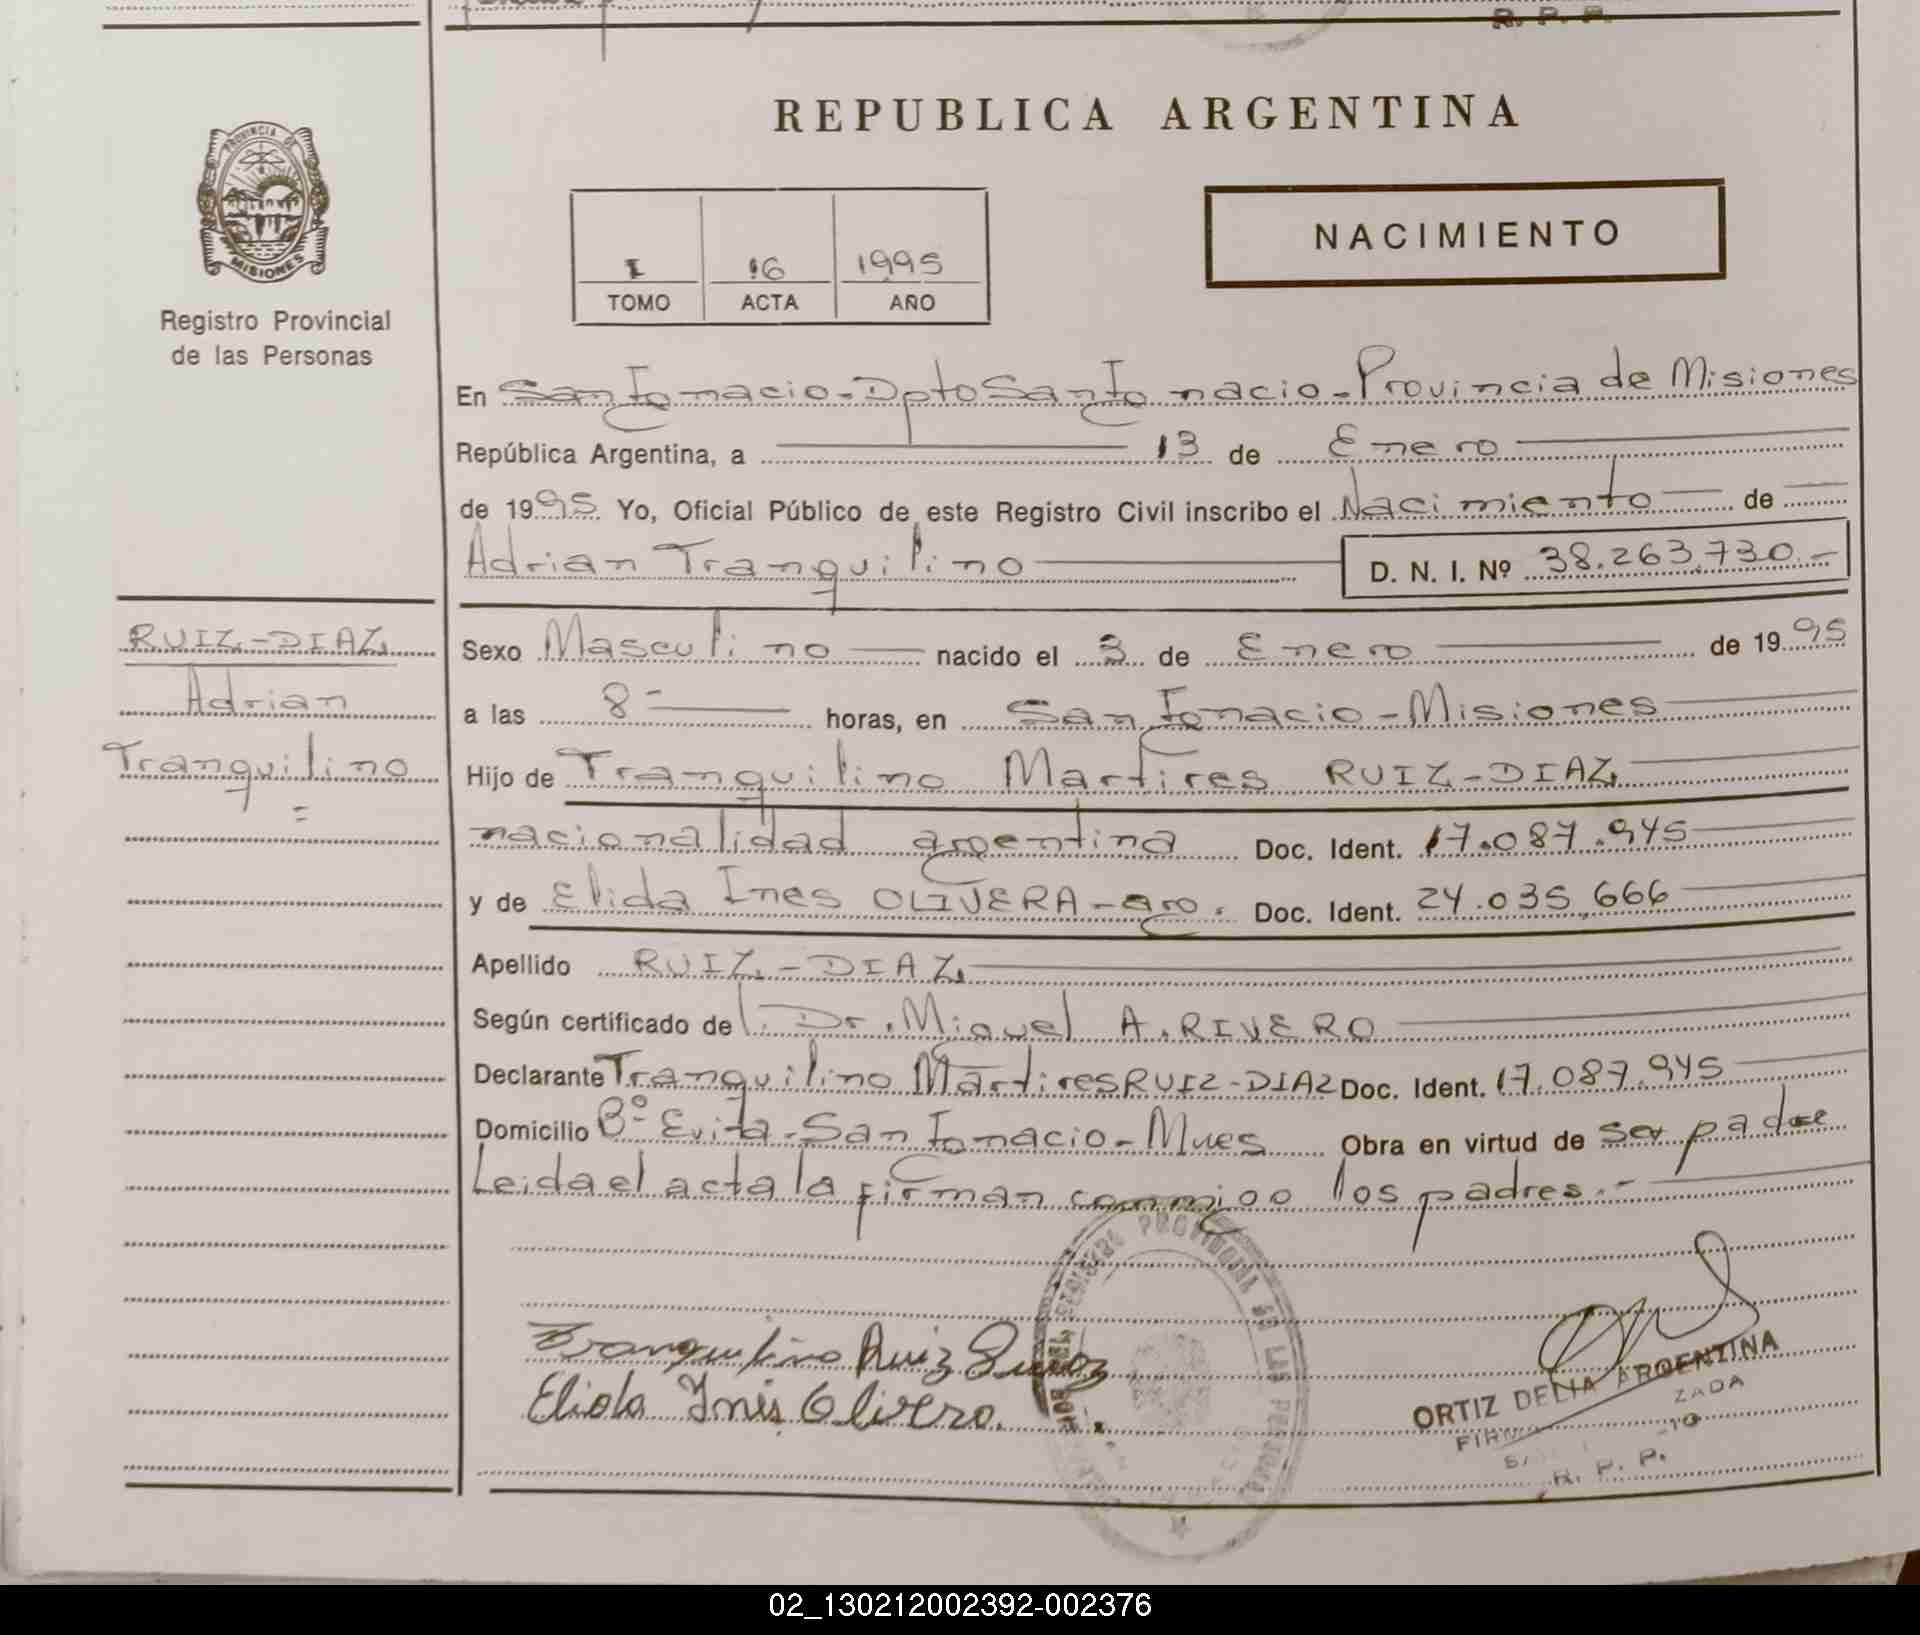 R. P. P.
REPUBLICA ARGENTINA
PROVINCIA DE
MISIONES
Registro Provincial
de las Personas
I 16 1995
TOMO ACTA AÑO
NACIMIENTO
En San Ignacio - Dpto San Ignacio - Provincia de Misiones
República Argentina, a 13 de Enero
de 1995 Yo, Oficial Público de este Registro Civil inscribo el Nacimiento de
Adrian Tranquilino D. N. I. Nº 38.263.730.-
RUIZ-DIAZ
Adrian
Tranquilino
Sexo Masculino nacido el 3 de Enero de 1995
a las 8- horas, en San Ignacio - Misiones
Hijo de Tranquilino Martires RUIZ-DIAZ
nacionalidad argentina Doc. Ident. 17.087.945
y de Elida Ines OLIVERA - arg. Doc. Ident. 24.035.666
Apellido RUIZ - DIAZ
Según certificado del Dr. Miguel A. RIVERO
Declarante Tranquilino Martires RUIZ-DIAZ Doc. Ident. 17.087.945
Domicilio Bº Evita - San Ignacio - Mnes Obra en virtud de ser padre
Leida el acta la firman conmigo los padres.-
PROVINCIAL DE LAS PERSONAS
Tranquilino Ruiz
Elida Inés Olivera.
ORTIZ DELIA ARGENTINA
R. P. P.
02_130212002392-002376